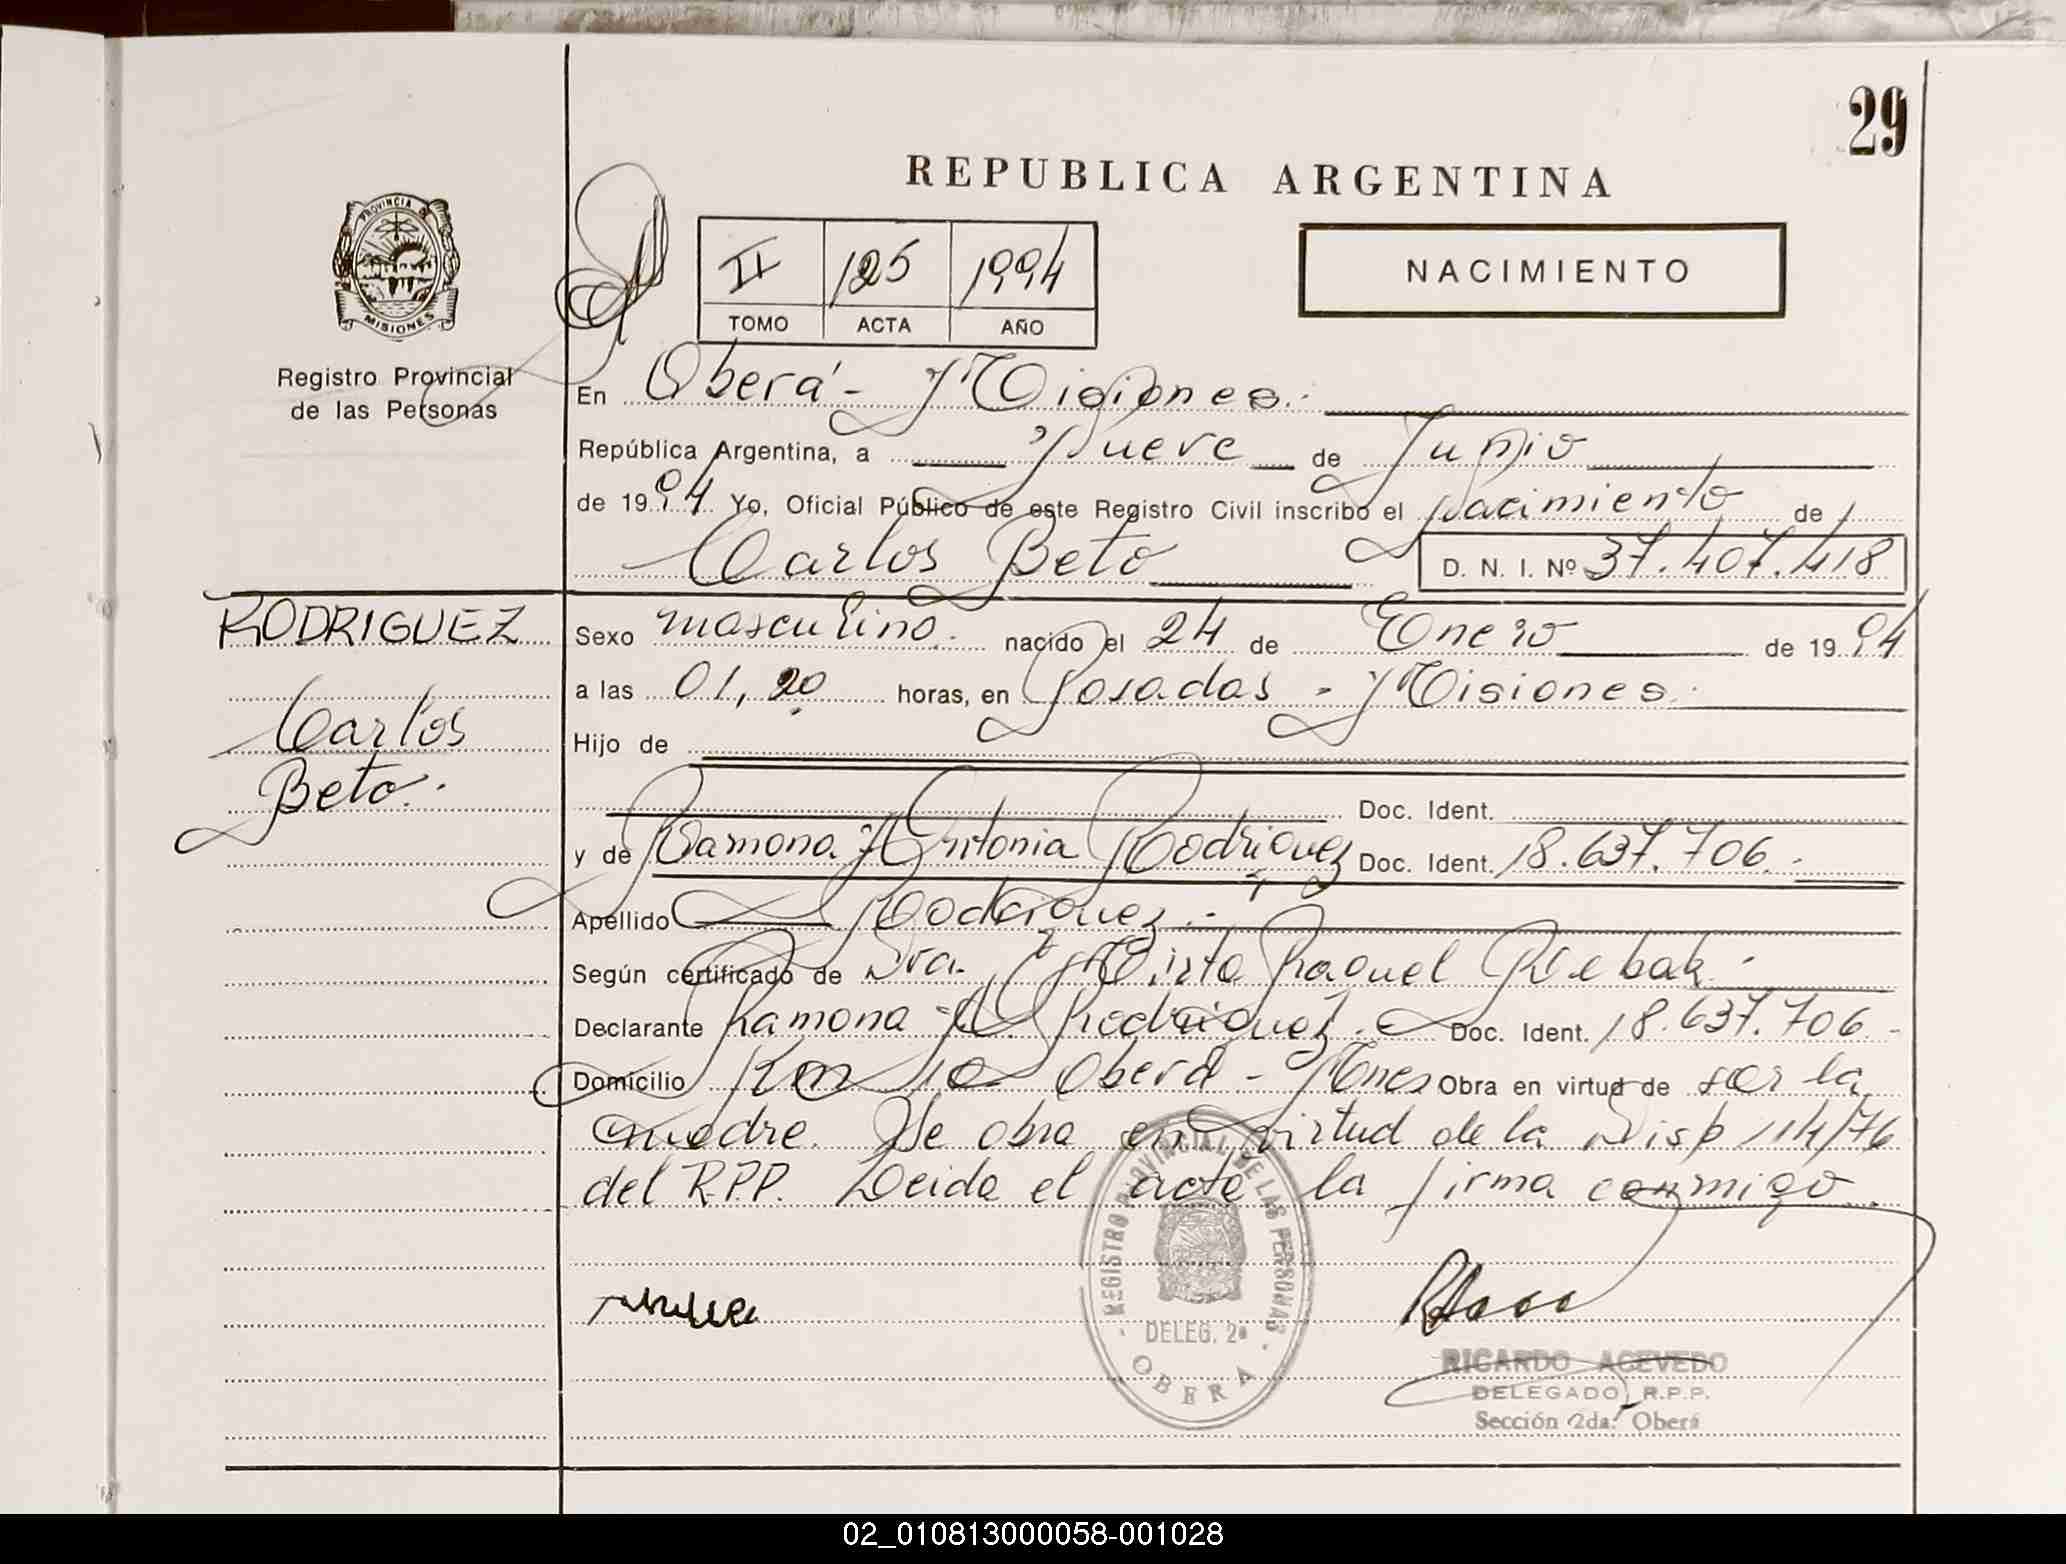 29
REPUBLICA ARGENTINA
PROVINCIA DE
MISIONES
Registro Provincial
de las Personas
II 125 1994
TOMO ACTA AÑO
NACIMIENTO
En Oberá - Misiones.
República Argentina, a Nueve de Junio
de 1994 Yo, Oficial Público de este Registro Civil inscribo el Nacimiento de
Carlos Beto D. N. I. Nº 37.407.418
RODRIGUEZ
Carlos
Beto.
Sexo masculino. nacido el 24 de Enero de 1994
a las 01,20 horas, en Posadas - Misiones.
Hijo de
Doc. Ident.
y de Ramona Antonia Rodriguez Doc. Ident. 18.637.706.
Apellido Rodriguez.
Según certificado de Dra. Mirta Raquel
Declarante Ramona A. Rodriguez. Doc. Ident. 18.637.706.
Domicilio Km 10 Oberá - Mnes Obra en virtud de ser la
madre. Se obra en virtud de la Disp 114/76
del R.P.P. Leida el acta la firma conmigo
REGISTRO PROVINCIAL DE LAS PERSONAS
DELEG. 2ª
OBERA
RICARDO ACEVEDO
DELEGADO R.P.P.
Sección 2da. Oberá
02_010813000058-001028